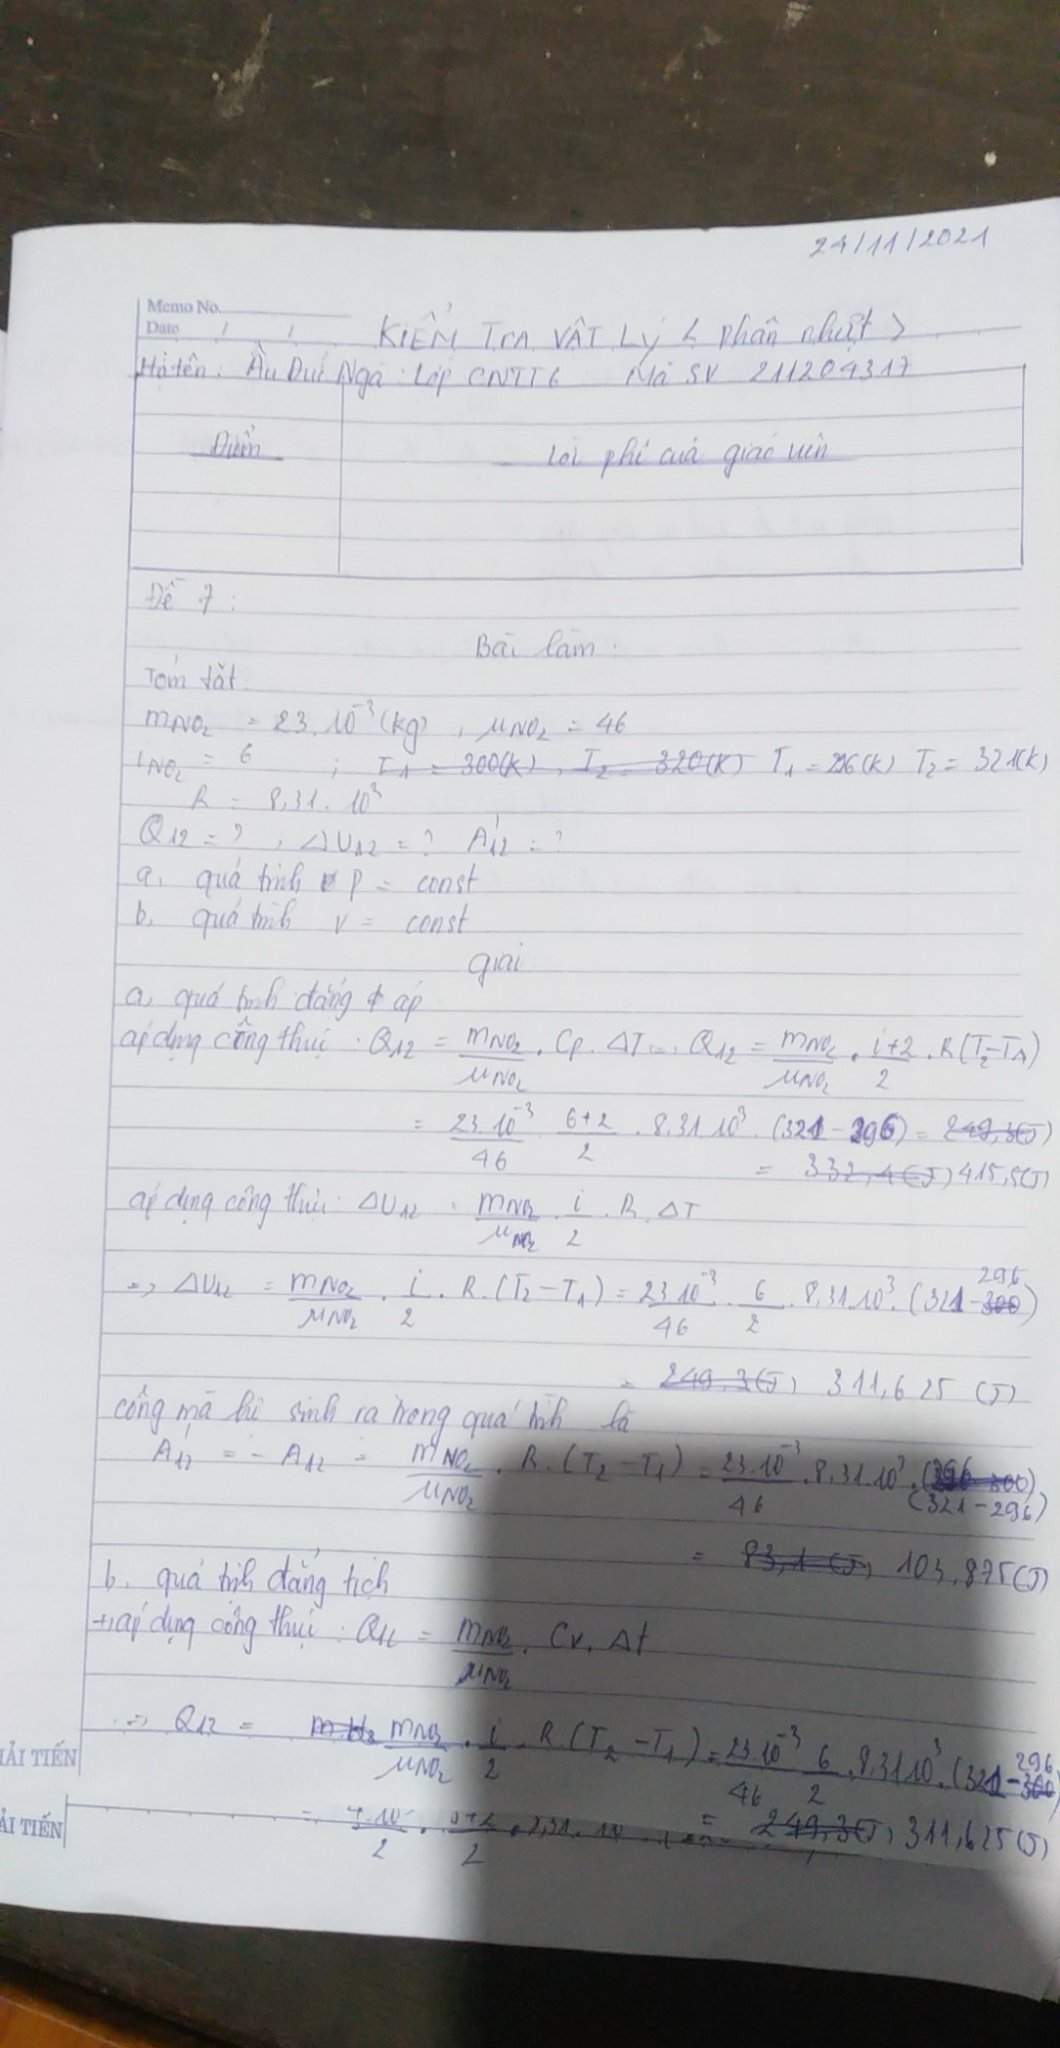 24/11/2021
Memo No.
Date / /
KIỂM TrA VẬT Lý < phần nhiệt >
Họ tên: Ầu Đức Nga Lớp CNTT6 Mã SV 211204317
Điểm
Lời phê của giáo viên
Đề 7:
Bài làm:
Tóm tắt
mNO₂ = 23.10⁻³ (kg), μNO₂ = 46
iNO₂ = 6 ; T₁ = 300(K), T₂ = 320(K) T₁ = 296(K) T₂ = 321(K)
R = 8,31.10³
Q₁₂ = ? ; ΔU₁₂ = ? A'₁₂ = ?
a, quá trình P = const
b, quá trình V = const
giải
a, quá trình đẳng áp
áp dụng công thức: Q₁₂ = mNO₂/μNO₂ . Cp. ΔT => Q₁₂ = mNO₂/μNO₂ . i+2/2 . R(T₂-T₁)
= 23.10⁻³/46 . 6+2/2 . 8,31.10³ . (321 - 296) = 249,3(J)
= 332,4(J) 415,5(J)
áp dụng công thức: ΔU₁₂ = mNO₂/μNO₂ . i/2 . R. ΔT
=> ΔU₁₂ = mNO₂/μNO₂ . i/2 . R.(T₂-T₁) = 23.10⁻³/46 . 6/2 . 8,31.10³. (321 - 300) 296
= 249,3(J) 311,625 (J)
công mà khí sinh ra trong quá trình là
A'₁₂ = - A₁₂ = mNO₂/μNO₂ . R.(T₂-T₁) = 23.10⁻³/46 . 8,31.10³. (321-296)
= 83,1(J) 103,875(J)
b, quá trình đẳng tích
+, áp dụng công thức: Q₁₂ = mNO₂/μNO₂ . Cv. Δt
=> Q₁₂ = mNO₂/μNO₂ . i/2 . R.(T₂-T₁) = 23.10⁻³/46 . 6/2 . 8,31.10³. (321 - 300) 296
= 249,3(J) 311,625(J)
ẢI TIẾN
ẢI TIẾN